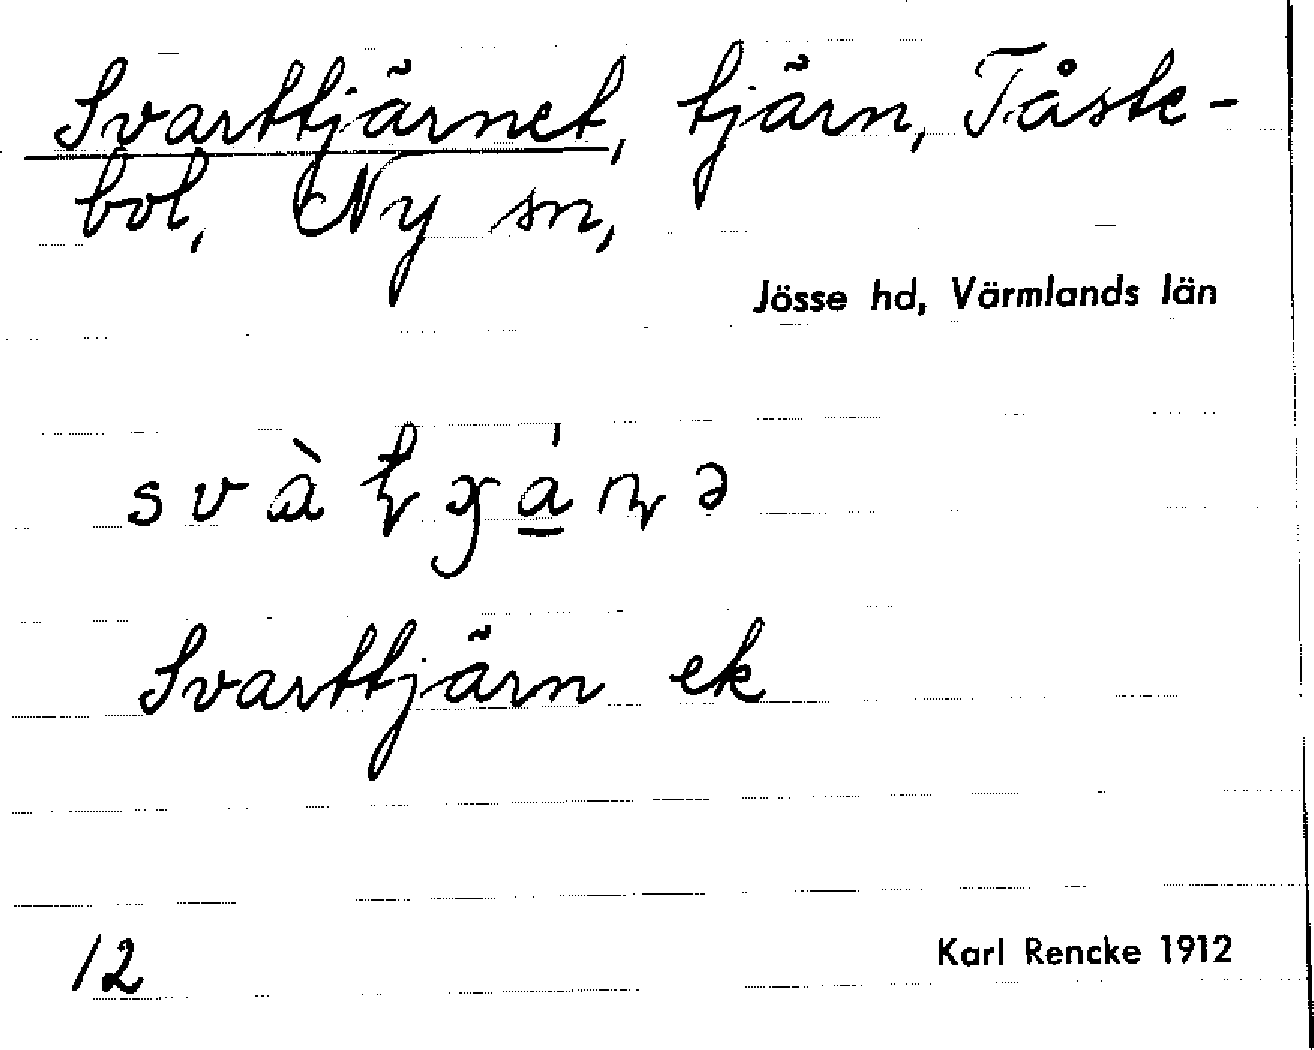 Svarttjärnet, tjärn, Tåste-
bol, Ny sn,
Jösse hd, Värmlands län
Svarttjärn ek
12
Karl Rencke 1912